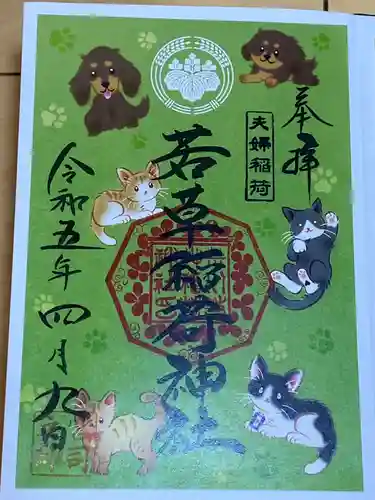 奉拝
夫婦稲荷
若草稲荷神社
令和五年四月九日